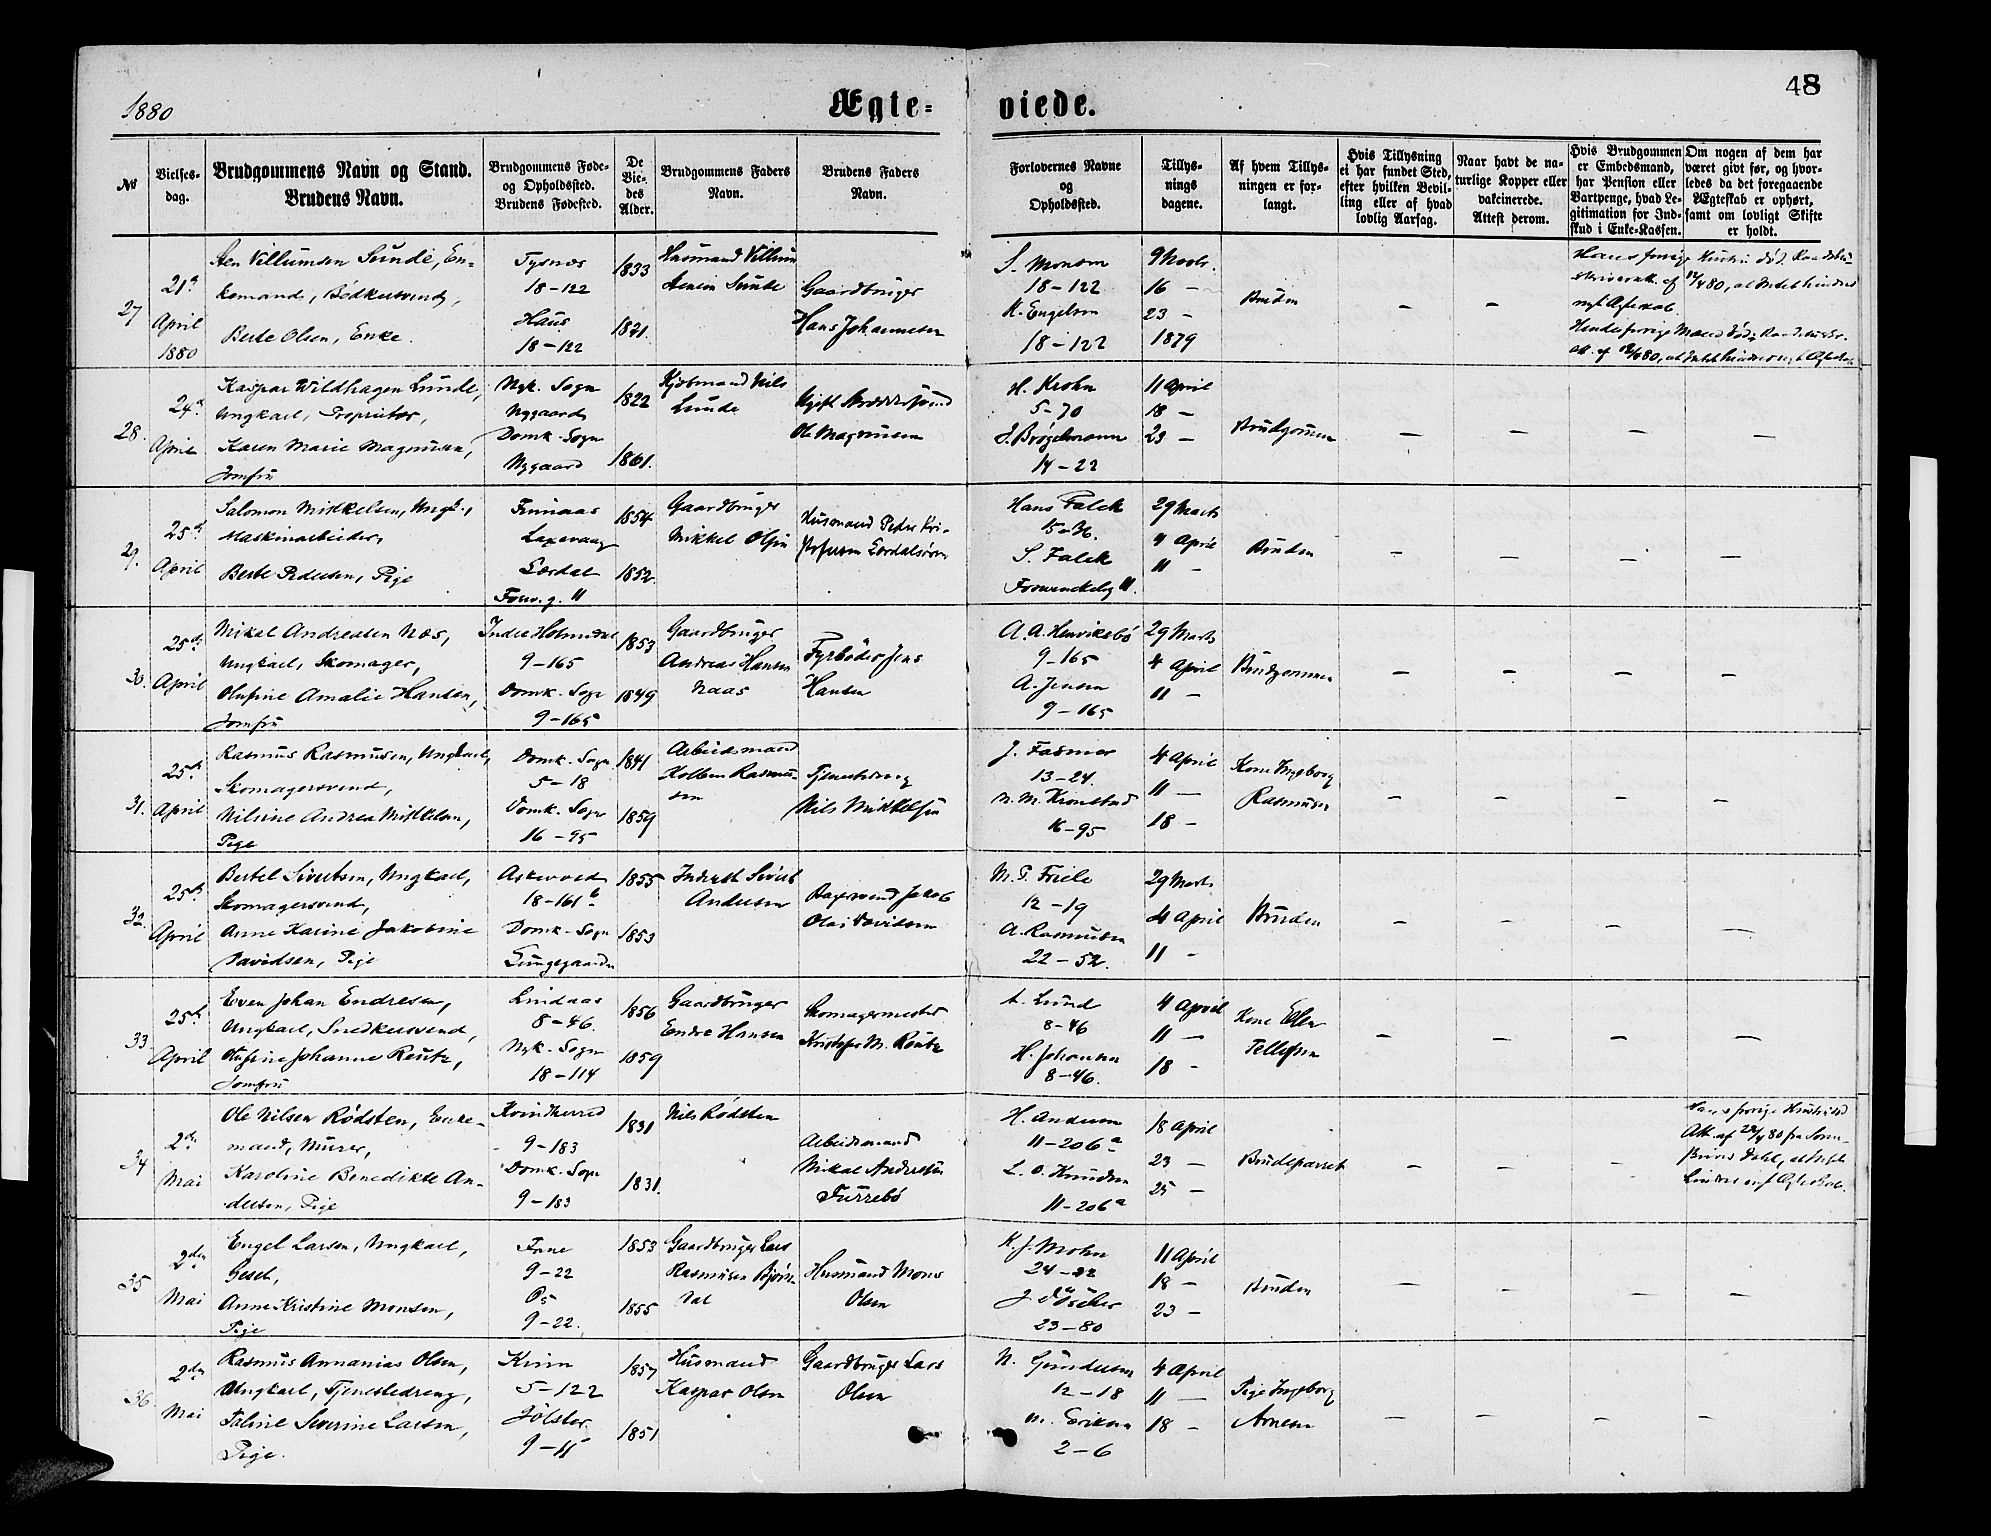 1880
Ægte-
viede.
48
№
Vielses-
dag.
Brudgommens Navn og Stand.
Brudens Navn.
Brudgommens Føde-
og Opholdssted.
Brudens Fødested.
De
Vie-
des
Alder.
Brudgommens Faders
Navn.
Brudens Faders
Navn.
Forlovernes Navne
og
Opholdssted.
Tillys-
nings
dagene.
Af hvem Tillys-
ningen er for-
langt.
Hvis Tillysning
ei har fundet Sted,
efter hvilken Bevil-
ling eller af hvad
lovlig Aarsag.
Naar havt de na-
turlige Kopper eller
vakcinerede.
Attest derom.
Hvis Brudgommen
er Embedsmand,
har Pension eller
Vartpenge, hvad Le-
gitimation for Ind-
skud i Enke-Kassen.
Om nogen af dem har
været givt før, og hvor-
ledes da det foregaaende
Ægteskab er ophørt,
samt om lovligt Skifte
er holdt.
27
21de
April
1880
Sten Villumsen Sunde, En-
kemand, Bødkersvend,
Berte Olsen, Enke.
Tysnæs
18-122
Haus
18-122
1833
1821.
Husmand Villum
Sunde
Gaardbruger
Hans Johannesen
S. Monsen
18-122
K. Engelsen
18-122
9 Novbr.
16 -
23 -
1879
Bruden
-
-
Hans forrige Hustru død.
Hendes forrige Mand død,
28.
24de
April
Kaspar Wildhagen Lunde,
Ungkarl, Proprietær,
Karen Marie Magnusen,
Jomfru
Nyk. Sogn
Nygaard
Domk. Sogn
Nygaard
1822
1861.
Kjøbmand Nils
Lunde
Ole Magnusen
H. Krohn
5-70
J. Brøgelmann
14-22
11 April
18 -
23 -
Brudgommen
-
-
-
-
29.
25de
April
Salomon Mikkelsen, Ungk.,
Maskinarbeider,
Berte Pedersen, Pige
Finnaas
Laxevaag
Lærdal
Forsv.g. 11
1854
1852.
Gaardbruger
Mikkel Olsen
Husmand Peder Kri-
stofersen Lærdalsøren
Hans Falck
15-36.
S. Falck
Forsvinckelsg 11.
29 Marts
4 April
11 -
Bruden
-
-
-
-
30.
25de
April
Mikal Andreasen Næs,
Ungkarl, Skomager,
Olufine Amalie Hansen,
Jomfru
Indre Holmedal
9-165
Domk. Sogn
9-165
1853
1849
Gaardbruger
Andreas Hansen
Naas
Fyrbøder Jens
Hansen
A. A. Henriksbø
9-165
A. Jensen
9-165
29 Marts
4 April
11 -
Brudgommen
-
-
-
-
31.
25de
April
Rasmus Rasmusen, Ungkarl,
Skomagersvend,
Nilsine Andrea Mikkelsen,
Pige
Domk. Sogn
5-18
Domk. Sogn
16-95
1841
1859
Arbeidsmand
Kolben Rasmu-
sen
Tjenestedreng
Nils Mikkelsen
J. Fasmer
13-24.
N. M. Kronstad
16-95
4 April
11 -
18 -
Kone Ingeborg
Rasmusen
-
-
-
-
32.
25de
April
Bertel Sivertsen, Ungkarl,
Skomagersvend,
Anne Karine Jakobine
Davidsen, Pige
Askevold
18-161b
Domk. Sogn
Lungegaarden
1855
1853
Inderst Sivert
Andersen
Bagersvend Jakob
Olai Davidsen
M. G. Friele
12-19
A. Rasmusen
22-52.
29 Marts
4 April
11 -
Bruden
-
-
-
-
33.
25de
April
Even Johan Endresen,
Ungkarl, Snedkersvend,
Olufine Johanne Reutz,
Jomfru
Lindaas
8-46.
Nyk. Sogn
18-114
1856
1859
Gaardbruger
Endre Hansen
Skomagermester
Kristofer M. Reutz
A. Lund
8-46
H. Johansen
8-46.
4 April
11 -
18 -
Kone Ellen
Tellefsen
-
-
-
-
34
2den
Mai
Ole Nilsen Rødsten, Enke-
mand, Murer,
Karoline Benedikte An-
dersen, Pige
Kvindherred
9-183
Domk. Sogn
9-183
1831
1831.
Nils Rødsten
Arbeidsmand
Mikal Andersen
Furrebø
H. Andersen
11-206a
L. O. Knudsen
11-206a
18 April
23 -
25 -
Brudeparret
-
-
-
Hans forrige Hustru død
Att. af 28/4 80 fra Soren-
35
2den
Mai
Engel Larsen, Ungkarl,
Gesel,
Anne Kristine Monsen,
Pige
Fane
9-22
Os
9-22.
1853
1855
Gaardbruger Lars
Rasmusen Bjørn-
dal
Husmand Mons
Olsen
K. J. Mohn
24-22
23-80
11 April
18 -
23 -
Bruden
-
-
-
-
36
2den
Mai
Rasmus Annanias Olsen,
Ungkarl, Tjenestedreng,
Taline Severine Larsen,
Pige.
Kinn
5-122
Jølster
9-11
1857
1851
Husmand
Kaspar Olsen
Gaardbruger Lars
Olsen
N. Gundersen
12-18
M. Eriksen
2-6
4 April
11 -
18 -
Pige Ingeborg
Arnesen
-
-
-
-